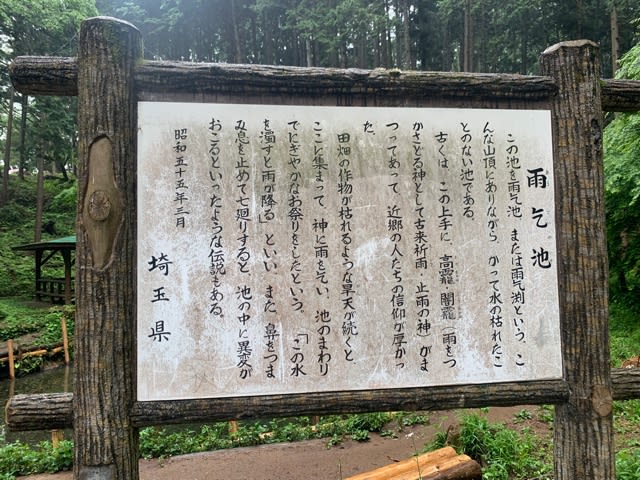 雨乞池
この池を雨乞池、または雨乞渕という。こ
んな山頂にありながら、かつて水の枯れたこ
とのない池である。
古くは、この上手に、高龗、闇龗（雨をつ
かさどる神として古来祈雨、止雨の神）がま
つってあって、近郷の人たちの信仰が厚かっ
た。
田畑の作物が枯れるような旱天が続くと、
ここに集まって、神に雨を乞い、池のまわり
でにぎやかなお祭りをしたという。「この水
を濁すと雨が降る」といい、また、鼻をつま
み息を止めて七廻りすると、池の中に異変が
おこるといったような伝説もある。
昭和五十五年三月
埼玉県